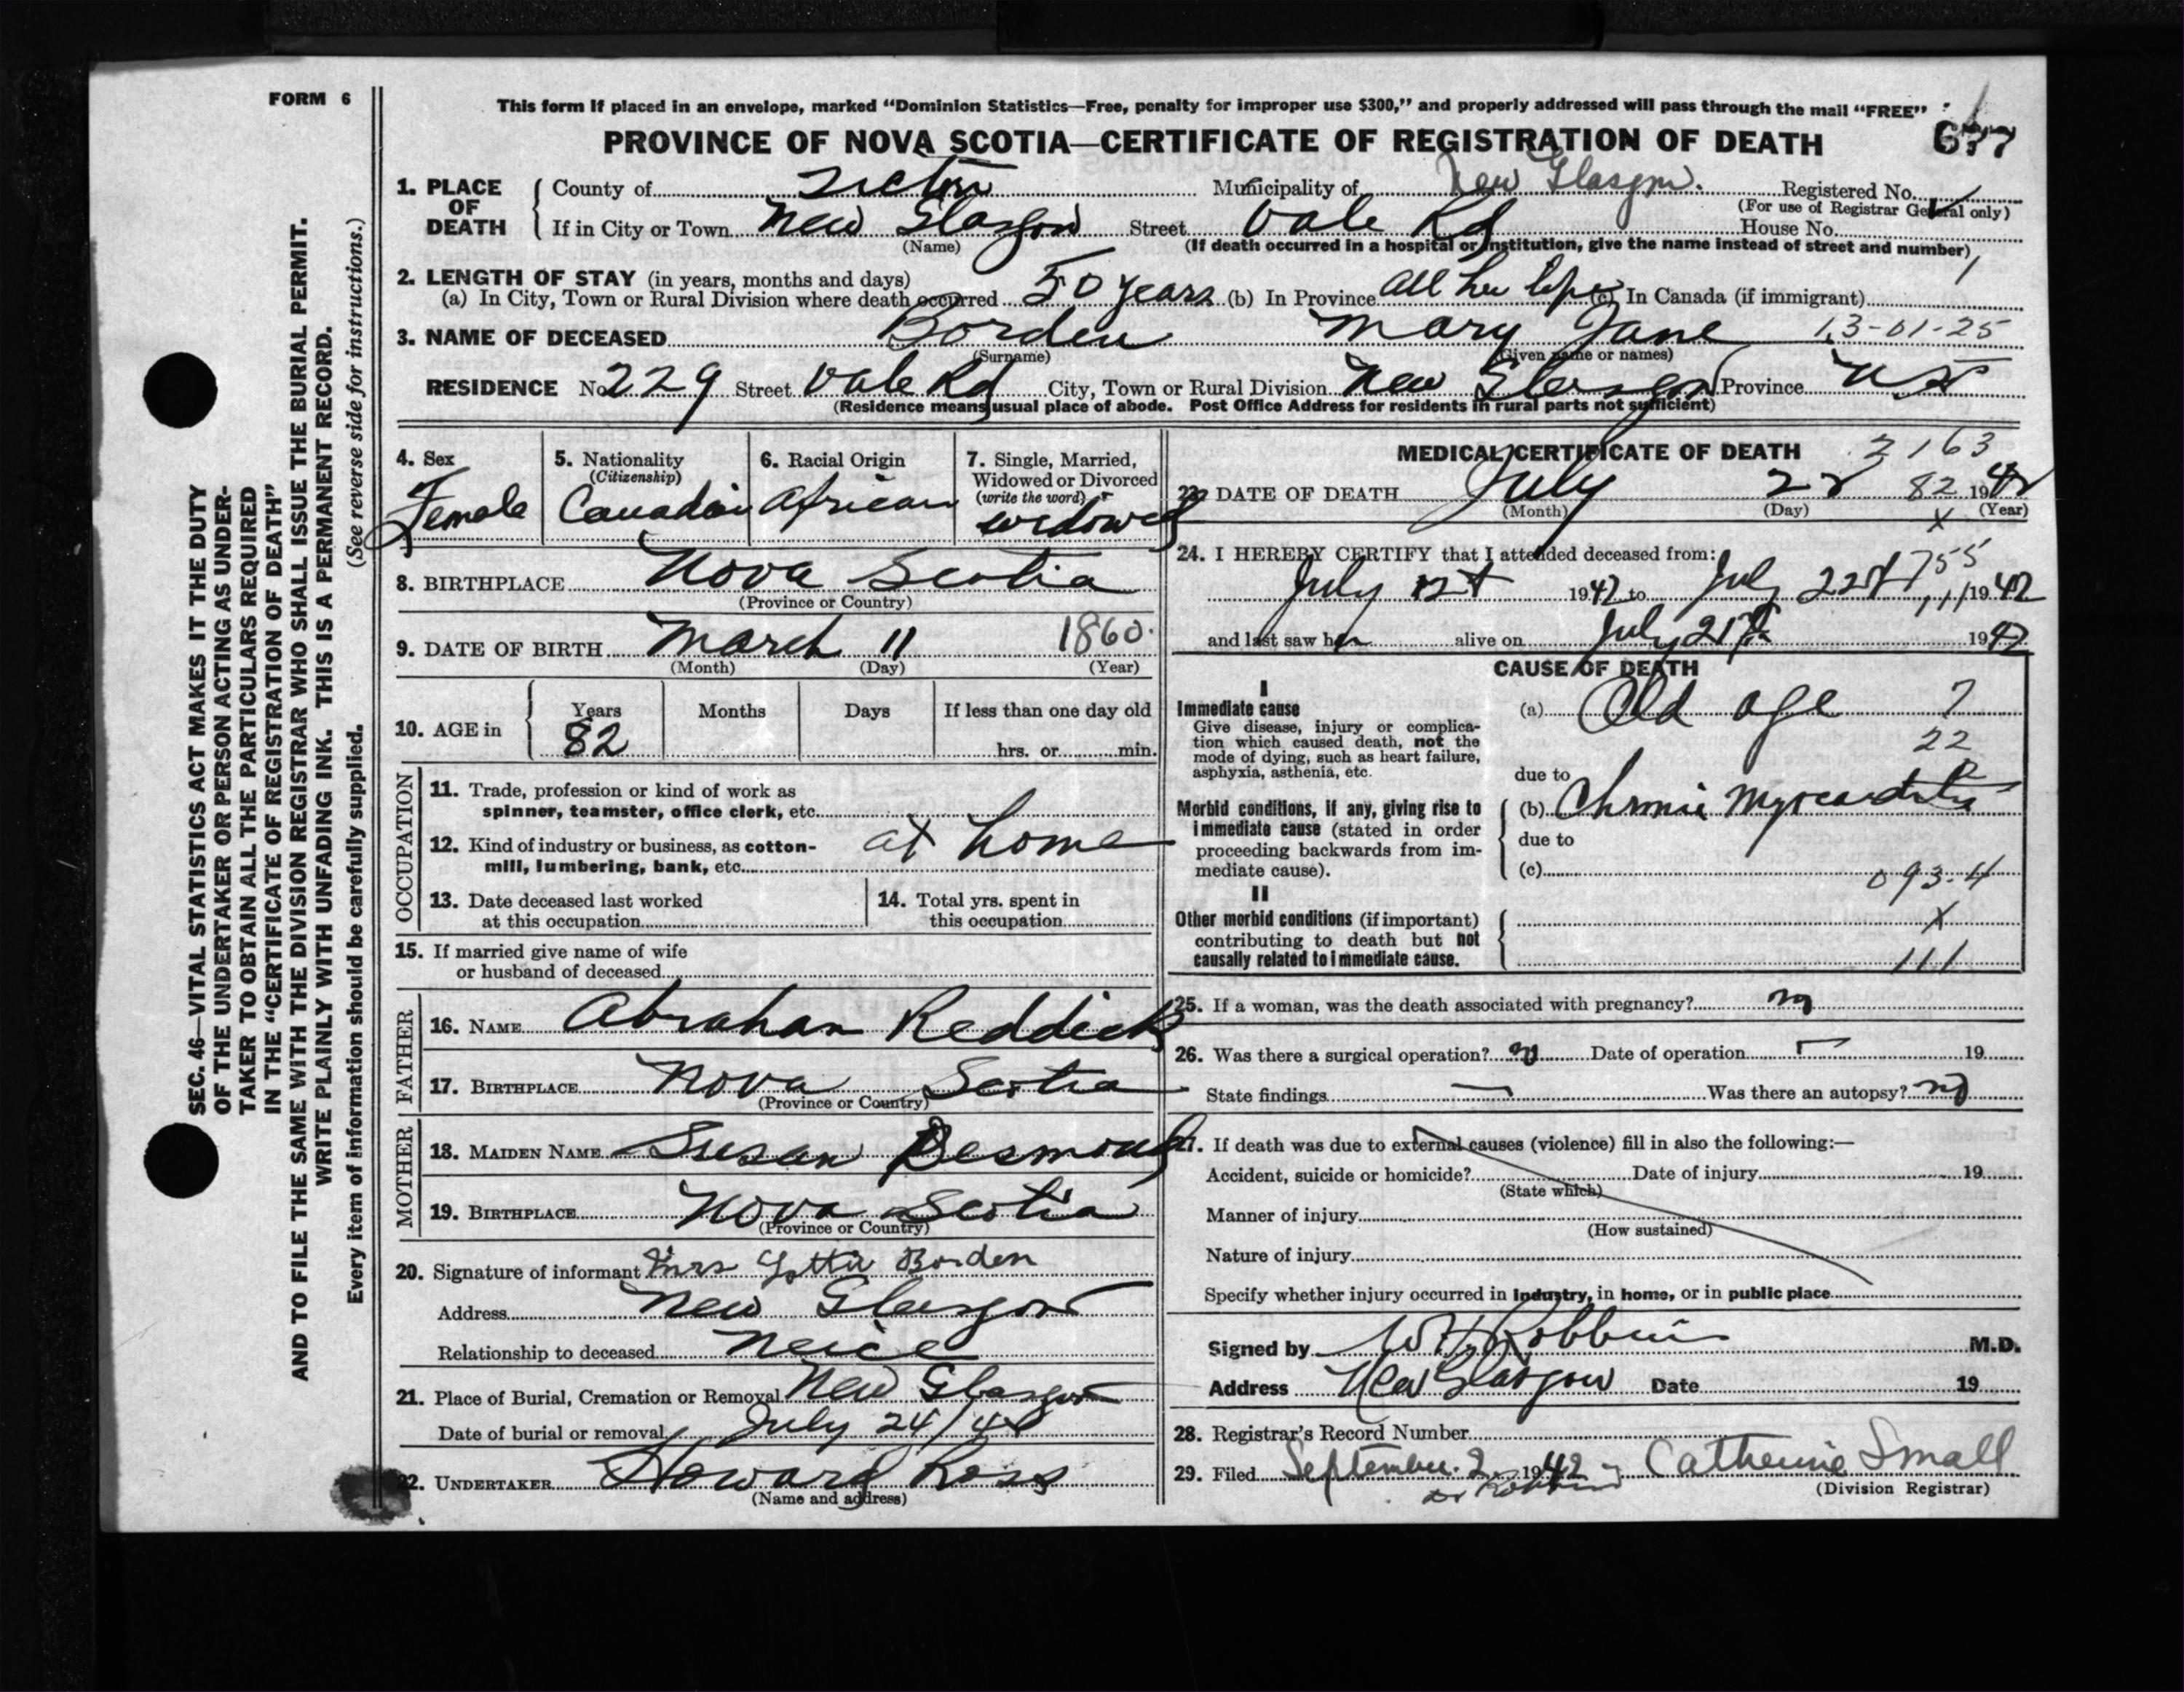 FORM 6
This form if placed in an envelope, marked “Dominion Statistics—Free, penalty for improper use $300,” and properly addressed will pass through the mail “FREE”
PROVINCE OF NOVA SCOTIA—CERTIFICATE OF REGISTRATION OF DEATH 677
SEC. 46—VITAL STATISTICS ACT MAKES IT THE DUTY
OF THE UNDERTAKER OR PERSON ACTING AS UNDER-
TAKER TO OBTAIN ALL THE PARTICULARS REQUIRED
IN THE “CERTIFICATE OF REGISTRATION OF DEATH”
AND TO FILE THE SAME WITH THE DIVISION REGISTRAR WHO SHALL ISSUE THE BURIAL PERMIT.
WRITE PLAINLY WITH UNFADING INK. THIS IS A PERMANENT RECORD.
Every item of information should be carefully supplied. (See reverse side for instructions.)
1. PLACE OF DEATH
County of Pictou Municipality of New Glasgow. Registered No.
(For use of Registrar General only)
If in City or Town New Glasgow Street Vale Rd House No.
(Name) (If death occurred in a hospital or institution, give the name instead of street and number)
2. LENGTH OF STAY (in years, months and days)
(a) In City, Town or Rural Division where death occurred 50 years (b) In Province All her life (c) In Canada (if immigrant)
3. NAME OF DECEASED Borden Mary Jane 13-01-25
(Surname) (Given name or names)
RESIDENCE No. 229 Street Vale Rd City, Town or Rural Division New Glasgow Province N S
(Residence means usual place of abode. Post Office Address for residents in rural parts not sufficient)
4. Sex Female
5. Nationality (Citizenship) Canadian
6. Racial Origin African
7. Single, Married, Widowed or Divorced (write the word) widowed
8. BIRTHPLACE Nova Scotia
(Province or Country)
9. DATE OF BIRTH March 11 1860.
(Month) (Day) (Year)
10. AGE in Years Months Days If less than one day old
82 hrs. or min.
OCCUPATION
11. Trade, profession or kind of work as
spinner, teamster, office clerk, etc.
12. Kind of industry or business, as cotton-
mill, lumbering, bank, etc. at home
13. Date deceased last worked
at this occupation
14. Total yrs. spent in
this occupation
15. If married give name of wife
or husband of deceased
FATHER
16. NAME Abraham Reddick
17. BIRTHPLACE Nova Scotia
(Province or Country)
MOTHER
18. MAIDEN NAME Susan Desmond
19. BIRTHPLACE Nova Scotia
(Province or Country)
20. Signature of informant Mrs Lottie Borden
Address New Glasgow
Relationship to deceased neice
21. Place of Burial, Cremation or Removal New Glasgow
Date of burial or removal July 24/42
22. UNDERTAKER Howard Ross
(Name and address)
MEDICAL CERTIFICATE OF DEATH 2163
23. DATE OF DEATH July 22 82 1942
(Month) (Day) (Year)
X
24. I HEREBY CERTIFY that I attended deceased from: 755
July 12t 1942 to July 22d 111 1942
and last saw her alive on July 21st 1942
CAUSE OF DEATH
I
Immediate cause
Give disease, injury or complica-
tion which caused death, not the
mode of dying, such as heart failure,
asphyxia, asthenia, etc.
(a) Old age 7
22
due to
Morbid conditions, if any, giving rise to
immediate cause (stated in order
proceeding backwards from im-
mediate cause).
(b) Chronic Myocarditis
due to
(c) 093.4
II
Other morbid conditions (if important)
contributing to death but not
causally related to immediate cause.
X
111
25. If a woman, was the death associated with pregnancy? no
26. Was there a surgical operation? no Date of operation 19
State findings — Was there an autopsy? no
27. If death was due to external causes (violence) fill in also the following:—
Accident, suicide or homicide? Date of injury 19
(State which)
Manner of injury
(How sustained)
Nature of injury
Specify whether injury occurred in industry, in home, or in public place
Signed by W H Robbins M.D.
Address New Glasgow Date 19
28. Registrar's Record Number
29. Filed September 2 1942 Catherine Small
Dr Robbins (Division Registrar)